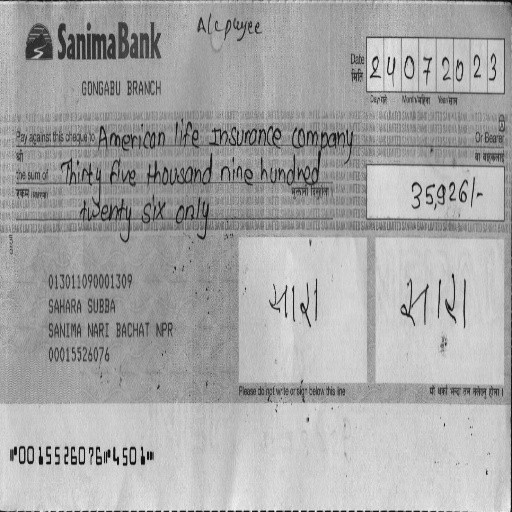 Sanima Bank
A/c payee
GONGABU BRANCH
Date
मिति
24072023
Day/गते Month/महिना Year/साल
Pay against this cheque to American life Insurance company
Or Bearer
श्री
वा वाहकलाई
the sum of Thirty five thousand nine hundred
रकम
twenty six only
35,926/-
013011090001309
SAHARA SUBBA
SANIMA NARI BACHAT NPR
00015526076
सारा
सारा
Please do not write or sign below this line
⑈0015526076⑈4501⑈